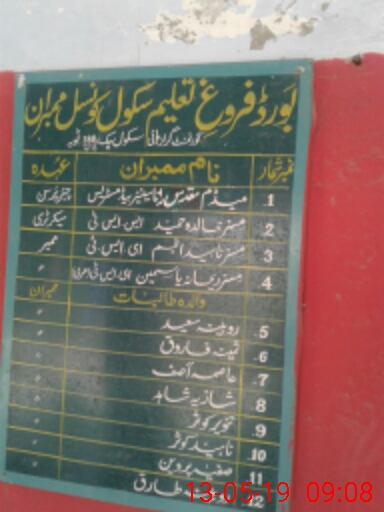 بورڈ فروغِ تعلیم سکول کونسل ممبران
گورنمنٹ گرلز ہائی سکول چک
نمبر شمار نام ممبران عہدہ
1. میڈم مقدس سینئر ہیڈ مسٹریس چیئرپرسن
2. مسز خالدہ حمید ایس.ایس.ٹی سیکرٹری
3. مسز ناہید انجم ای.ایس.ٹی ممبر
4. مسز ریحانہ یاسمین ای.ایس.ٹی عربی 〃
والدہ طالبات ممبران
5. روبینہ سعید 〃
6. ثمینہ فاروق 〃
7. عاصمہ آصف 〃
8. شازیہ شاہد 〃
9. تنویر کوثر 〃
10. ناہید کوثر 〃
11. صفیہ پروین 〃
12. طارق
13-05-19 09:08